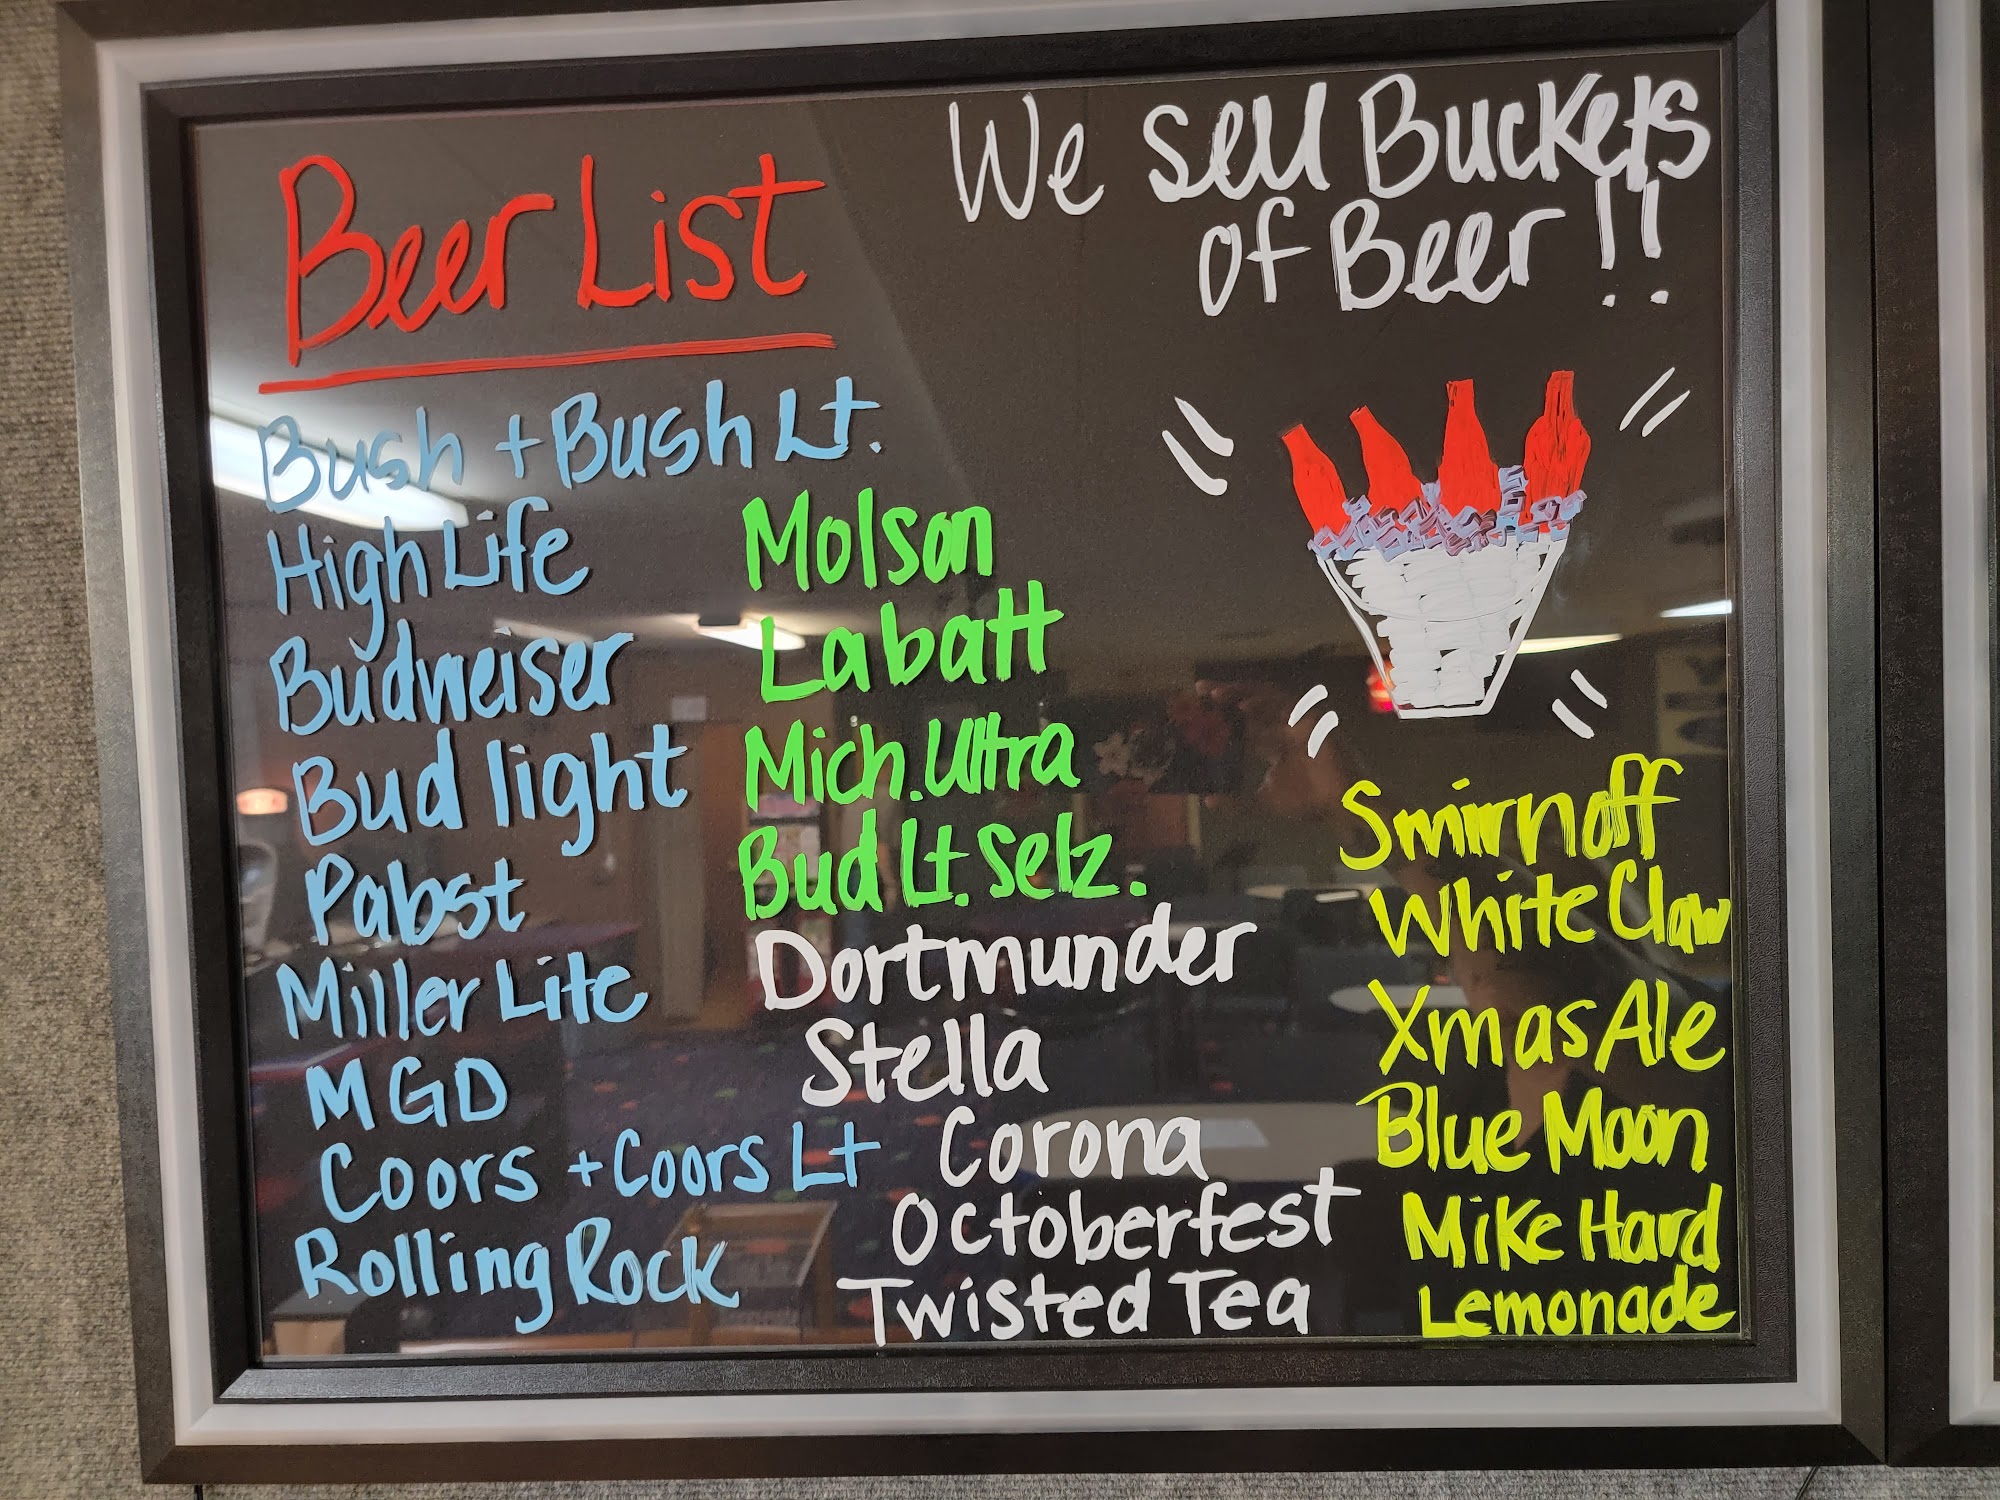 Beer List
We Sell Buckets
of Beer!!
Bush + Bush Lt.
High Life
Budweiser
Bud light
Pabst
Miller Lite
MGD
Coors + Coors Lt
Rolling Rock
Molson
Labatt
Mich. Ultra
Bud Lt. Selz.
Dortmunder
Stella
Corona
Octoberfest
Twisted Tea
Smirnoff
White Claw
Xmas Ale
Blue Moon
Mike Hard
Lemonade